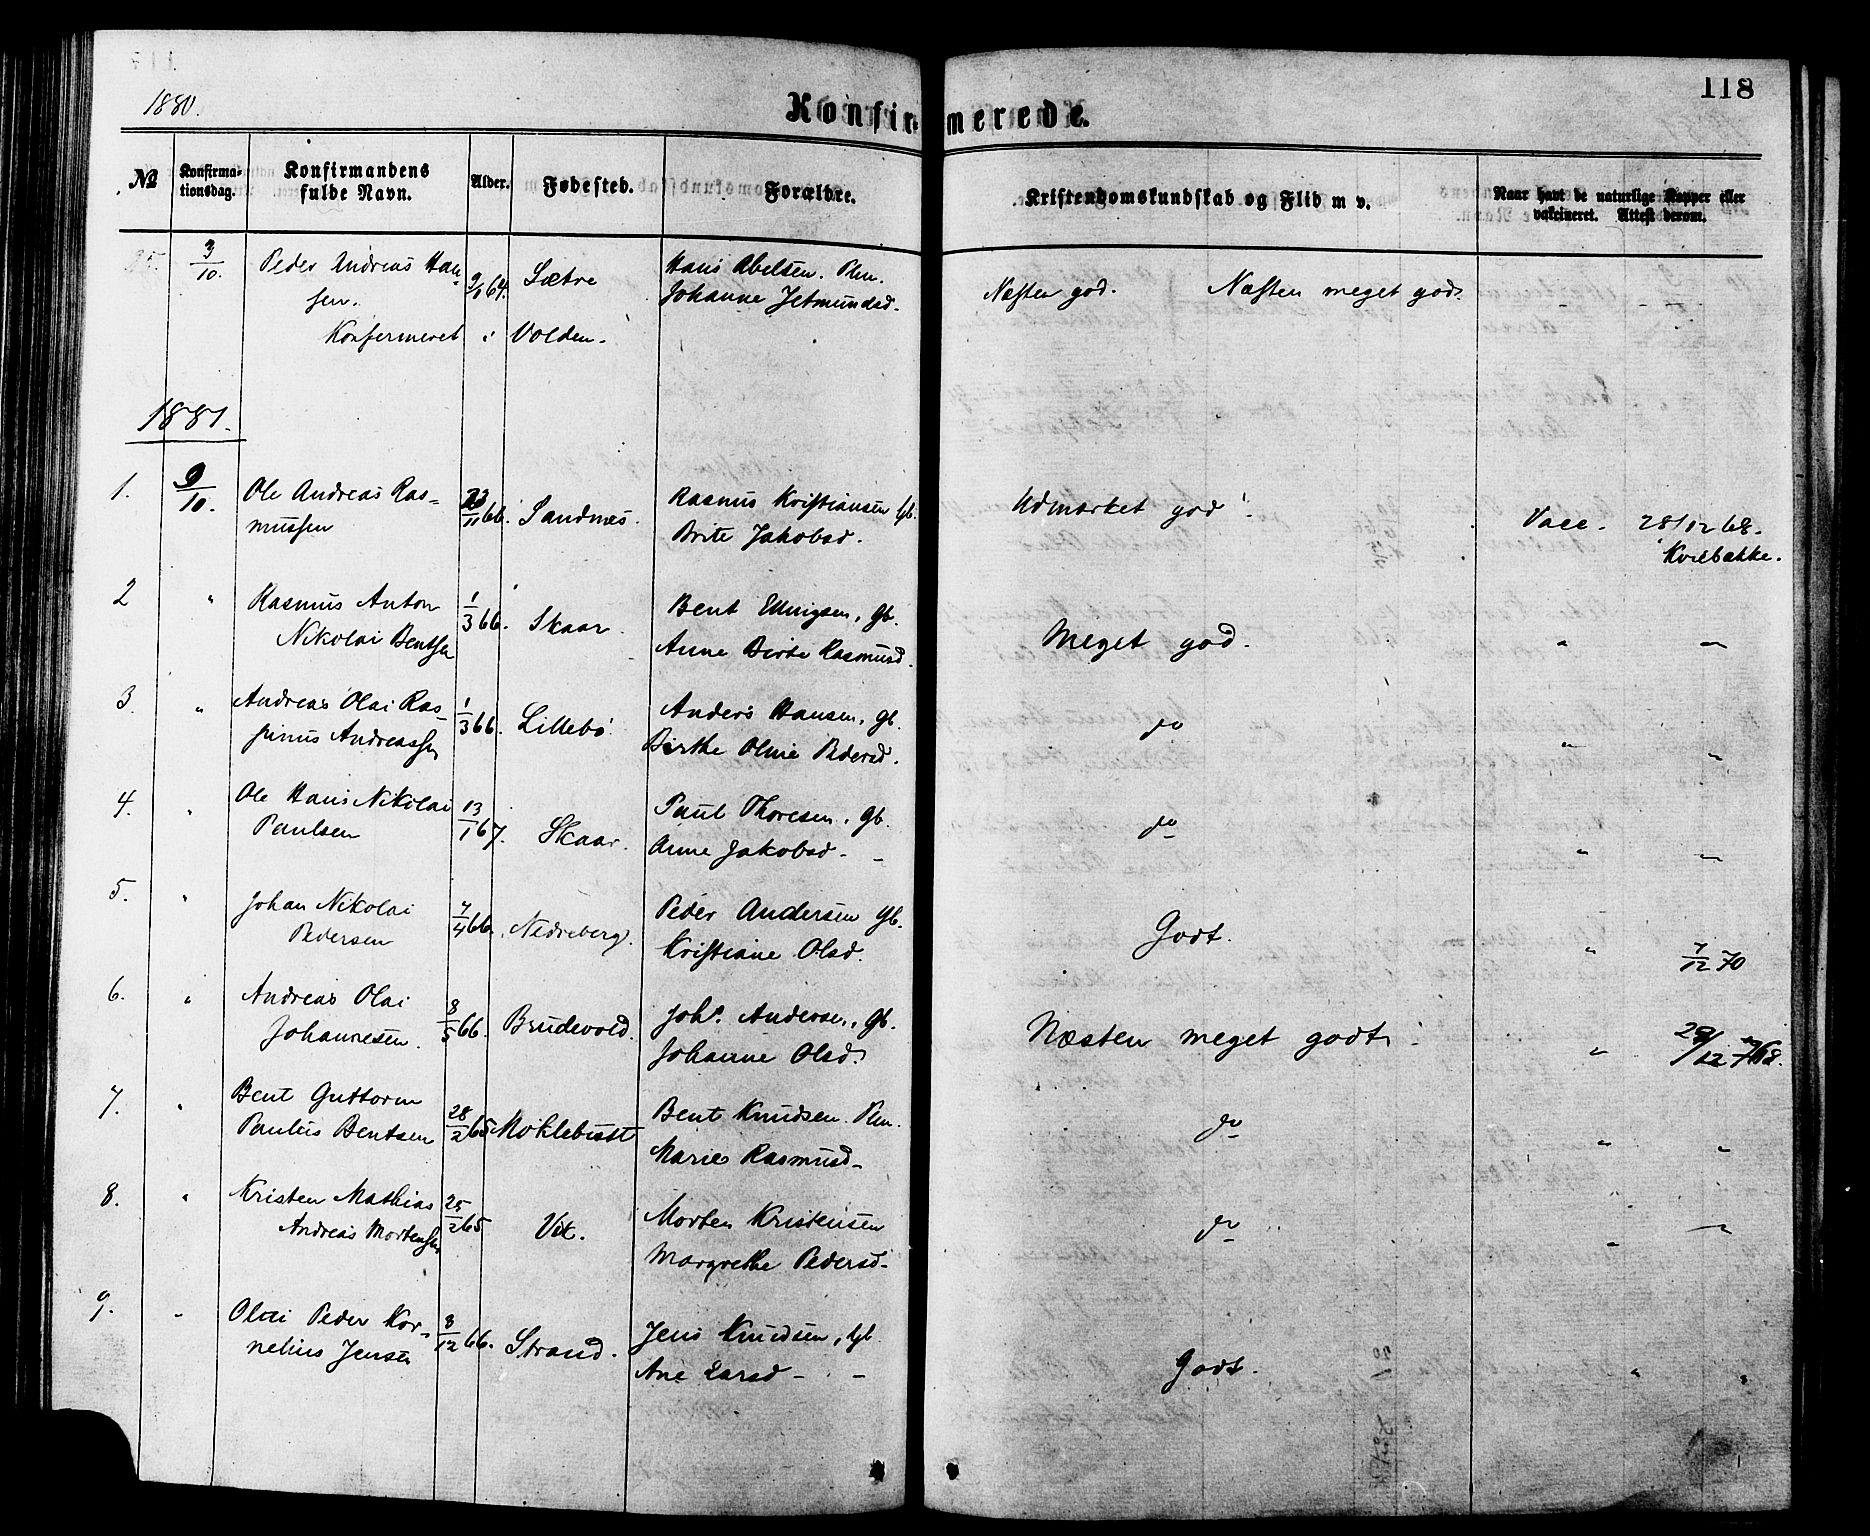 1880.
Konfirmerede.
118
№
Konfirma-
tionsdag.
Konfirmandens
fulde Navn.
Alder.
Fødested.
Forældre.
Kristendomskundskab og Flid m v.
Naar havt de naturlige Kopper eller
vakcineret. Attest derom.
25. 3/10. Peder Andreas Han- 9/1 64. Sætre Hans Abelsen. Plm. Næsten god. Næsten meget god.
sen. Johanne Jetmundsd.
Konfermeret i Volden.
1881.
1. 9/10. Ole Andreas Ras- 23/11 66. Sandnes. Rasmus Kristiansen Gb. Udmærket god. Vacc. 28/12 68.
mussen Brite Jakobsd. Kvilbakke.
2 " Rasmus Anton 1/3 66. Skaar. Bent Ellingsen, Gb. Meget god. " "
Nikolai Bentsen Anne Birte Rasmusd.
3. " Andreas Olai Ras- 1/3 66. Lillebø Anders Hansen, gb. do " "
sinus Andreassen Birthe Oline Pedersd.
4. " Ole Hans Nikolai 13/1 67. Skaar. Paul Thoresen, Gb. do " "
Paulsen Anne Jakobsd. -
5. " Johan Nikolai 7/4 66. Nedreberg. Peder Andersen Gb. Godt. " 7/12 70
Pedersen Kristiane Olsd.
6. " Andreas Olai 8/5 66. Brudevold. Johs. Anderse., Gb. Næsten meget godt. " 29/12 68.
Johannesen. Johanne Olsd.
7. " Bent Guttorm 28/2 65 Moklebust Bent Knudsen. Plm. do " "
Paulus Bentsen Marie Rasmusd.
8. " Kristen Mathias 25/2 65 Vik. Morten Kristensen do " "
Andreas Mortensen Margrethe Pedersd.
9. " Olai Peder Kor- 8/12 66. Strand. Jens Knudsen, Gb. Godt. " "
nelius Jensen Ane Larsd - -